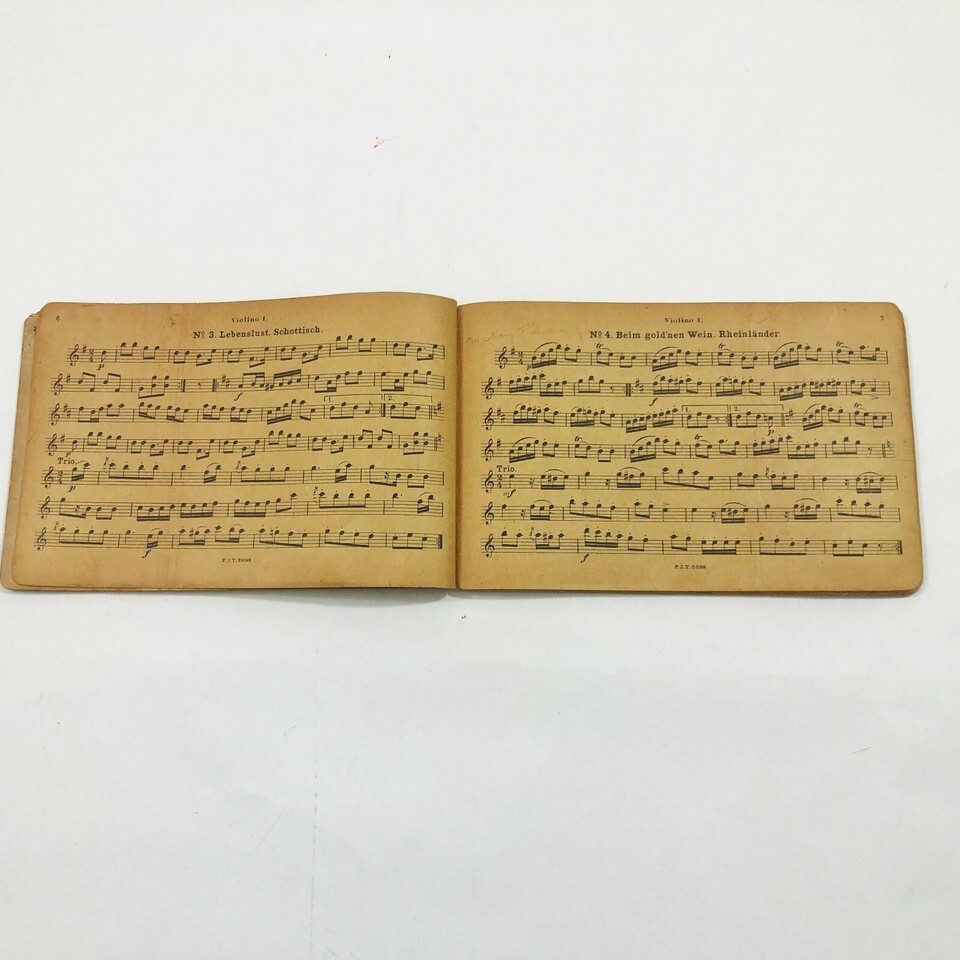 6
Violino I.
Nº 3. Lebenslust. Schottisch.
p
f
1.
2.
p
Trio.
p
f
P.J.T. 2098
Violino I.
7
Nº 4. Beim gold'nen Wein. Rheinländer.
p
tr
tr
tr
f
1.
2.
p
tr
tr
tr
Trio.
mf
f
P.J.T. 2098